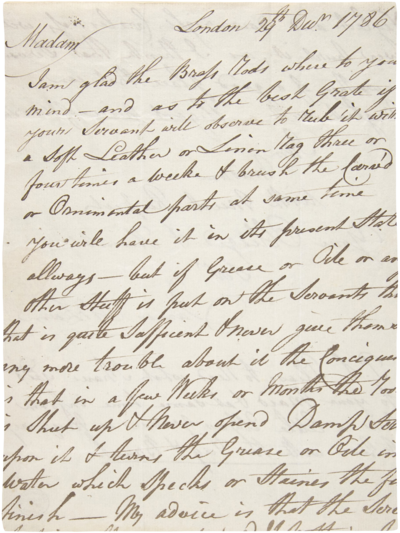 London 29th Decr. 1786
Madam
I am glad the Brass Rods where to your
mind - and as to the best Grate if
yours Servant will observe to Rub it with
a Soft Leather or Linen Rag three or
four times a weeke & brush the Carv'd
or Ornimental parts at same time
you will have it in its present State
allways - but if Grease or Oile or any
other Stuff is put on the Servants think
that is quite Sufficent & Never give themselves
any more trouble about it the
is that in a few Weeks or Months the Room
is Shut up & Never opend Damp
upon it & turns the Grease or Oile in
water which Specks or Staines the fine
finish - My advice is that the Serv